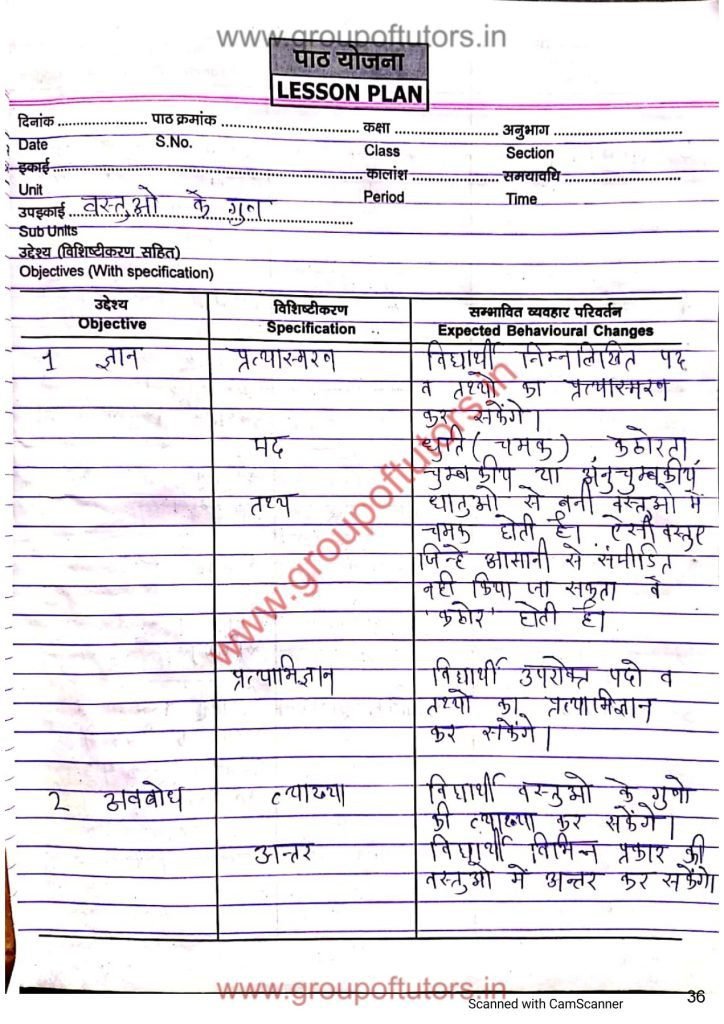 www.groupoftutors.in
पाठ योजना
LESSON PLAN
दिनांक .................... पाठ क्रमांक .............................. कक्षा ...................... अनुभाग ............................
Date S.No. Class Section
इकाई .................................................................... कालांश .................. समयावधि ..........................
Unit Period Time
उपइकाई वस्तुओ के गुन
Sub Units
उद्देश्य (विशिष्टीकरण सहित)
Objectives (With specification)
उद्देश्य विशिष्टीकरण सम्भावित व्यवहार परिवर्तन
Objective Specification Expected Behavioural Changes
1 ज्ञान प्रत्यास्मरण विद्यार्थी निम्नलिखित पद
व तथ्यो का प्रत्यास्मरण
कर सकेंगे।
पद धुति (चमक) कठोरता
चुम्बकीय या अनुचुम्बकीय
तथ्य धातुओ से बनी वस्तुओ में
चमक होती है। ऐसी वस्तुए
जिन्हे आसानी से संपीडित
नही किया जा सकता वे
'कठोर' होती है।
प्रत्याभिज्ञान विद्यार्थी उपरोक्त पदो व
तथ्यो का प्रत्याभिज्ञान
कर सकेंगे।
2 अवबोध व्याख्या विद्यार्थी वस्तुओ के गुणो
की व्याख्या कर सकेंगे।
अन्तर विद्यार्थी विभिन्न प्रकार की
वस्तुओ में अन्तर कर सकेंगे
www.groupoftutors.in
www.groupoftutors.in
Scanned with CamScanner
36